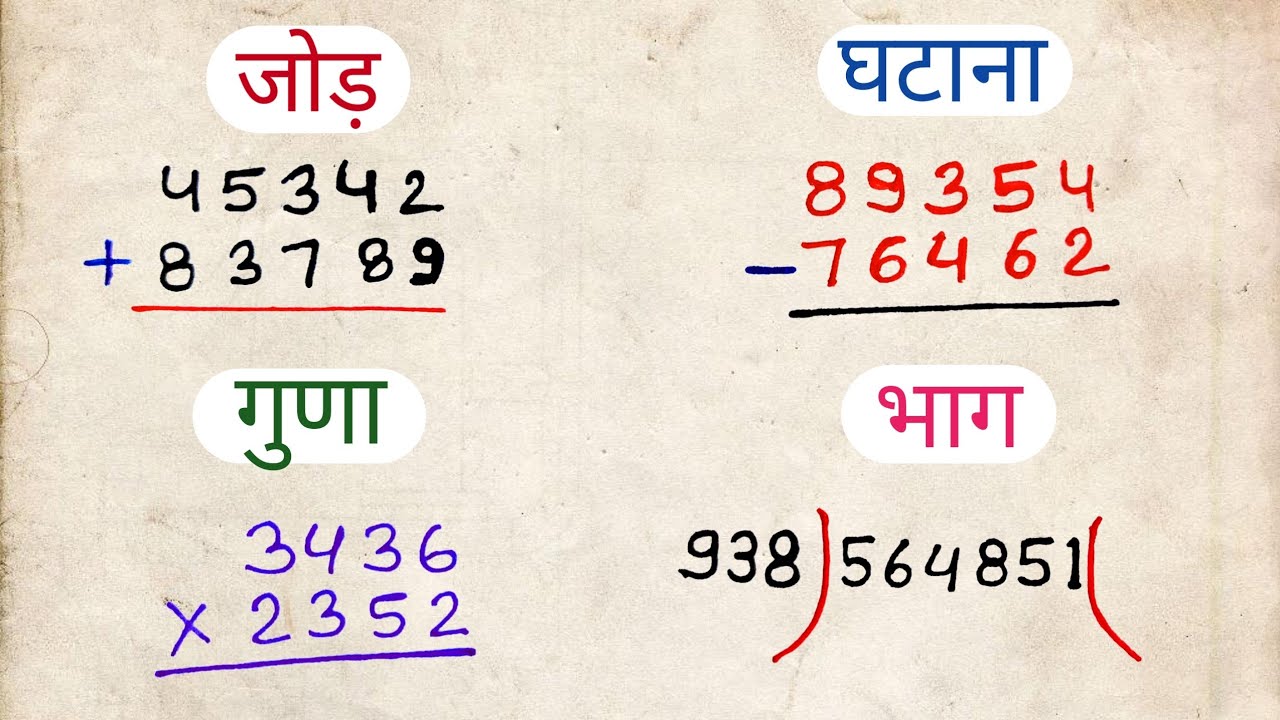 जोड़
45342
+ 83789
घटाना
89354
- 76462
गुणा
3436
x 2352
भाग
938)564851(